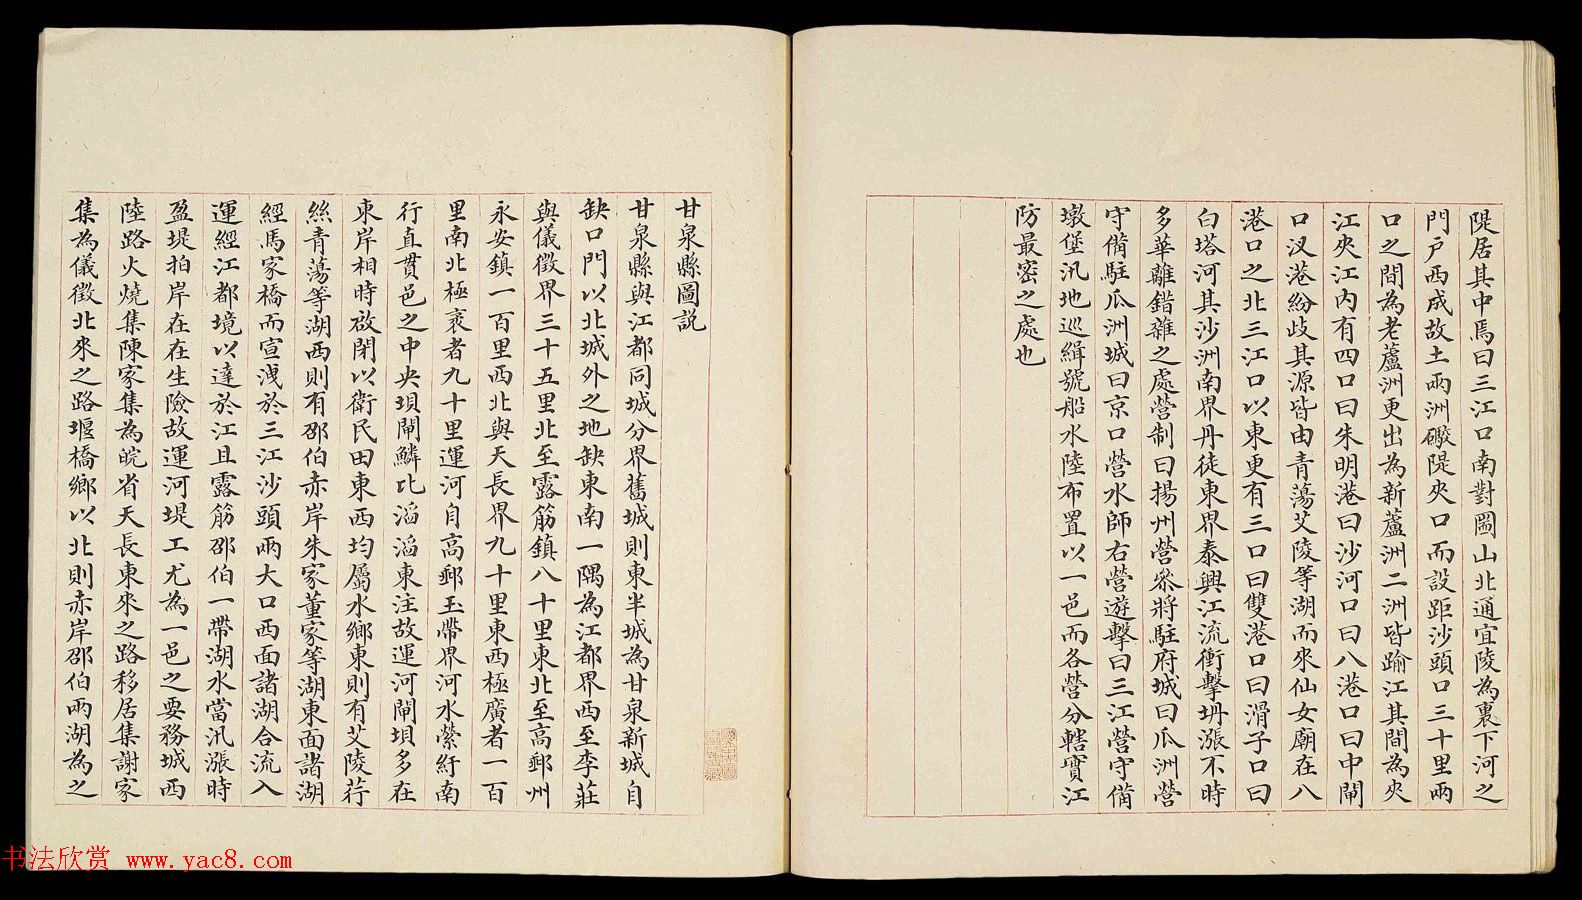 隄居其中焉曰三江口南對圌山北通宜陵為裏下河之
門戶西成故土兩洲礮隄夾口而設距沙頭口三十里兩
口之間為老蘆洲更出為新蘆洲二洲皆踰江其間為夾
江夾江內有四口曰朱明港曰沙河口曰八港口曰中閘
口汊港紛歧其源皆由青蕩艾陵等湖而來仙女廟在八
港口之北三江口以東更有三口曰雙港口曰滑子口曰
白塔河其沙洲南界丹徒東界泰興江流衝擊坍漲不時
多華離錯雜之處營制曰揚州營叅將駐府城曰瓜洲營
守備駐瓜洲城曰京口營水師右營遊擊曰三江營守備
墩堡汛地巡緝號船水陸布置以一邑而各營分轄實江
防最密之處也
甘泉縣圖説
甘泉縣與江都同城分界舊城則東半城為甘泉新城自
缺口門以北城外之地缺東南一隅為江都界西至李莊
與儀徵界三十五里北至露筋鎮八十里東北至高郵州
永安鎮一百里西北與天長界九十里東西極廣者一百
里南北極袤者九十里運河自高郵玉帶界河水縈紆南
行直貫邑之中央垻閘鱗比滔滔東注故運河閘垻多在
東岸相時啟閉以衛民田東西均屬水鄉東則有艾陵荇
絲青蕩等湖西則有邵伯赤岸朱家董家等湖東面諸湖
經馬家橋而宣洩於三江沙頭兩大口西面諸湖合流入
運經江都境以達於江且露筋邵伯一帶湖水當汛漲時
盈堤拍岸在在生險故運河堤工尤為一邑之要務城西
陸路火燒集陳家集為皖省天長東來之路移居集謝家
集為儀徵北來之路堰橋鄉以北則赤岸邵伯兩湖為之
书法欣赏 www.yac8.com